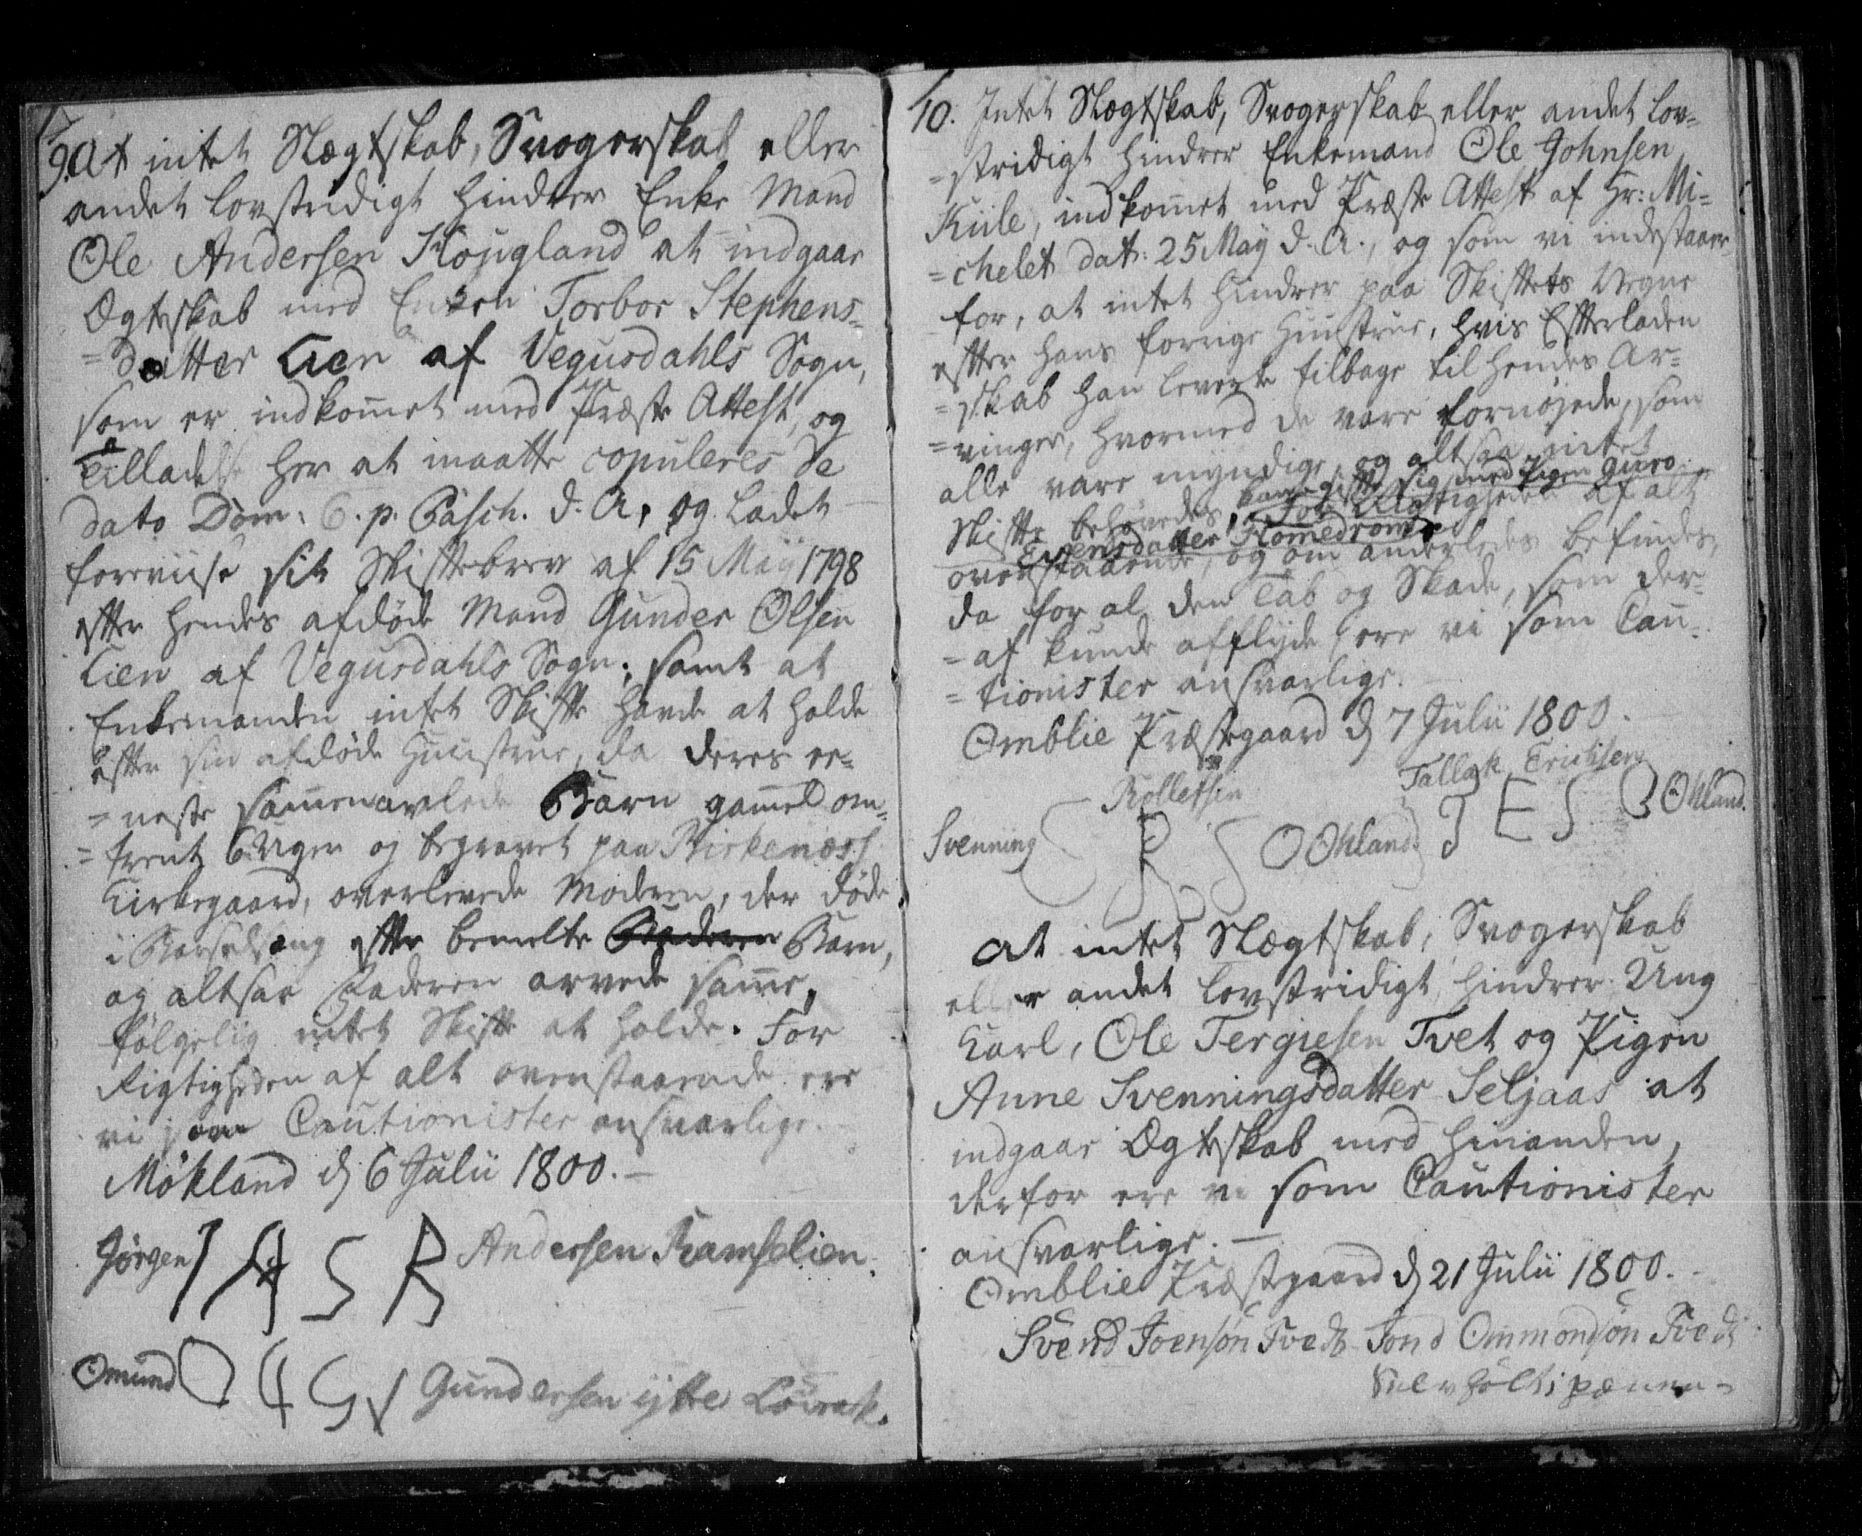 9. At intet Slægtskab, Svogerskab eller
andet lovstridigt hindrer Enke Mand
Ole Andersen Hougland at indgaae
Ægteskab med Enken Torbor Stephens-
=datter Lien af Vegusdahls Sogn,
som er indkommet med Præste Attest, og
Tilladelse her at maatte copuleres de
dato Dom: 6. p. Pasch. d. A., og ladet
foreviise sit Skiftebrev af 15 Maij 1798
efter hendes afdøde Mand Gunder Olsen
Lien af Vegusdahls Sogn; samt at
Enkemanden intet Skifte havde at holde
efter sin afdøde Huustrue, da deres ee-
=neste sammenavlede Barn gammel om-
=trent 6 Uger og begravet paa Birkenæss
Kirkegaard, overlevede Moderen, der døde
i Barselsæng efter bemelte Barn,
og altsaa Faderen arvede samme,
følgelig intet Skifte at holde. For
Rigtigheden af alt ovenstaaende ere
vi som Cautionister ansvarlige.
Møkland d 6 Julii 1800.
Jørgen J A S R Andersen Ramselien.
Omund O G S Gundersen ijttre
10. Intet Slægtskab, Svogerskab eller andet lov-
=stridigt hindrer Enkemand Ole Johnsen
Kiile, indkommet med Præste Attest af Hr: Mi-
=chelet dat: 25 May d. A., og som vi indestaaer
for, at intet hindrer paa Skiftets Vegne
efter hans forrige Huustrue, hvis Efterladen
=skab han leverte tilbage til hendes Ar-
=vinger, hvormed de vare fornøjede, som
alle vare myndige, og altsaa intet
Skifte behøvedes, han at gifte sig med Pigen Guro
Evensdatter Homedrom. For Rigtigheden af alt
ovenstaaende, og om anderledes befindes,
da for al den Tab og Skade, som der-
=af kunde afflyde ere vi som Cau-
=tionister ansvarlige.
Omblie Præstegaard d 7 Julii 1800.
Svenning Rollefsen R S O Ohland. Tallak Erichsen T E S O Ohland.
At intet Slægtskab, Svogerskab
eller andet lovstridigt, hindrer Ung
Karl, Ole Tergiesen Tvet og Pigen
Anne Svenningsdatter Seljaas at
indgaae Ægteskab med hinanden,
derfor ere vi som Cautionister
ansvarlige.
Omblie Præstgaard d 21 Julii 1800.
Svend Joensøn Tvedt Jond Ommondsøn Tvedt